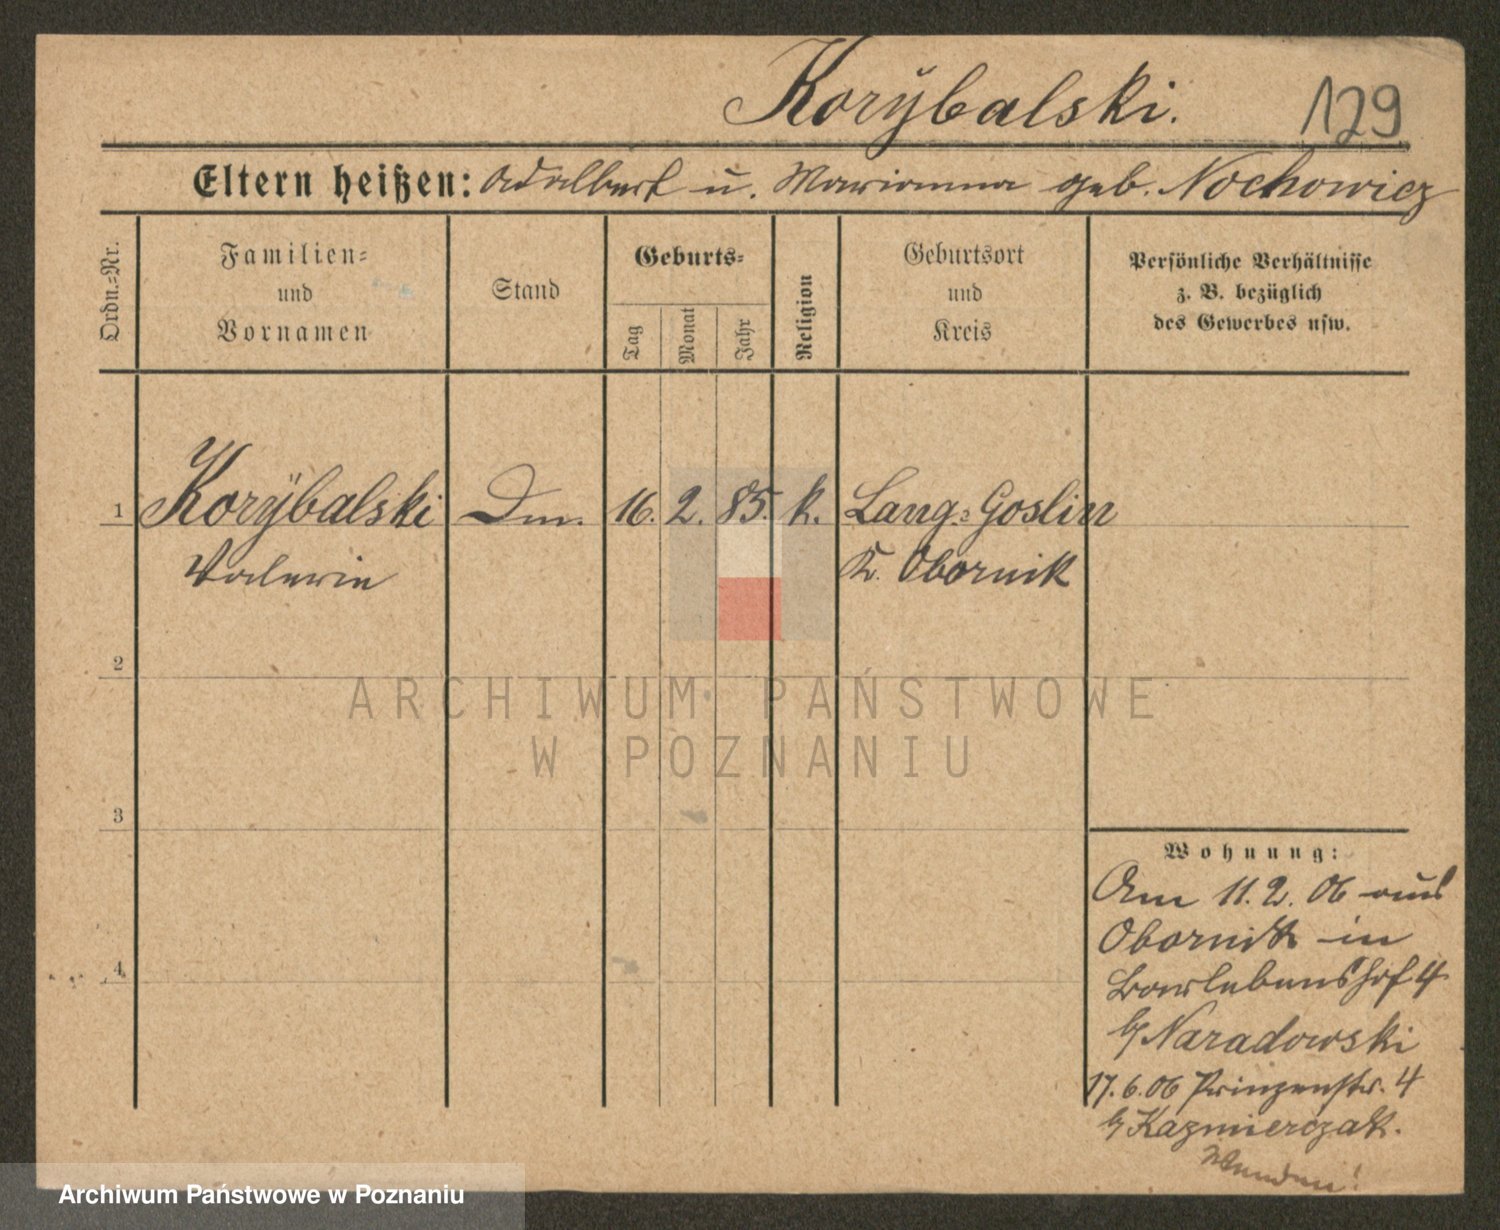 Korÿbalski.
129
Eltern heißen: Adalbert u. Marianna geb. Nochowicz
Ordn.-Nr.
Familien-
und
Vornamen
Stand
Geburts-
Tag
Monat
Jahr
Religion
Geburtsort
und
Kreis
Persönliche Verhältnisse
z. B. bezüglich
des Gewerbes usw.
1 Korÿbalski Dm. 16. 2. 85. k. Lang-Goslin
Valerie Kr. Obornik
2
ARCHIWUM PAŃSTWOWE
W POZNANIU
3
Wohnung:
Am 11.2.06 aus
Obornik in
4
4
b/ Naradowski
17.6.06 Prinzenstr. 4
b/ Kazmierczak.
Wenden!
Archiwum Państwowe w Poznaniu